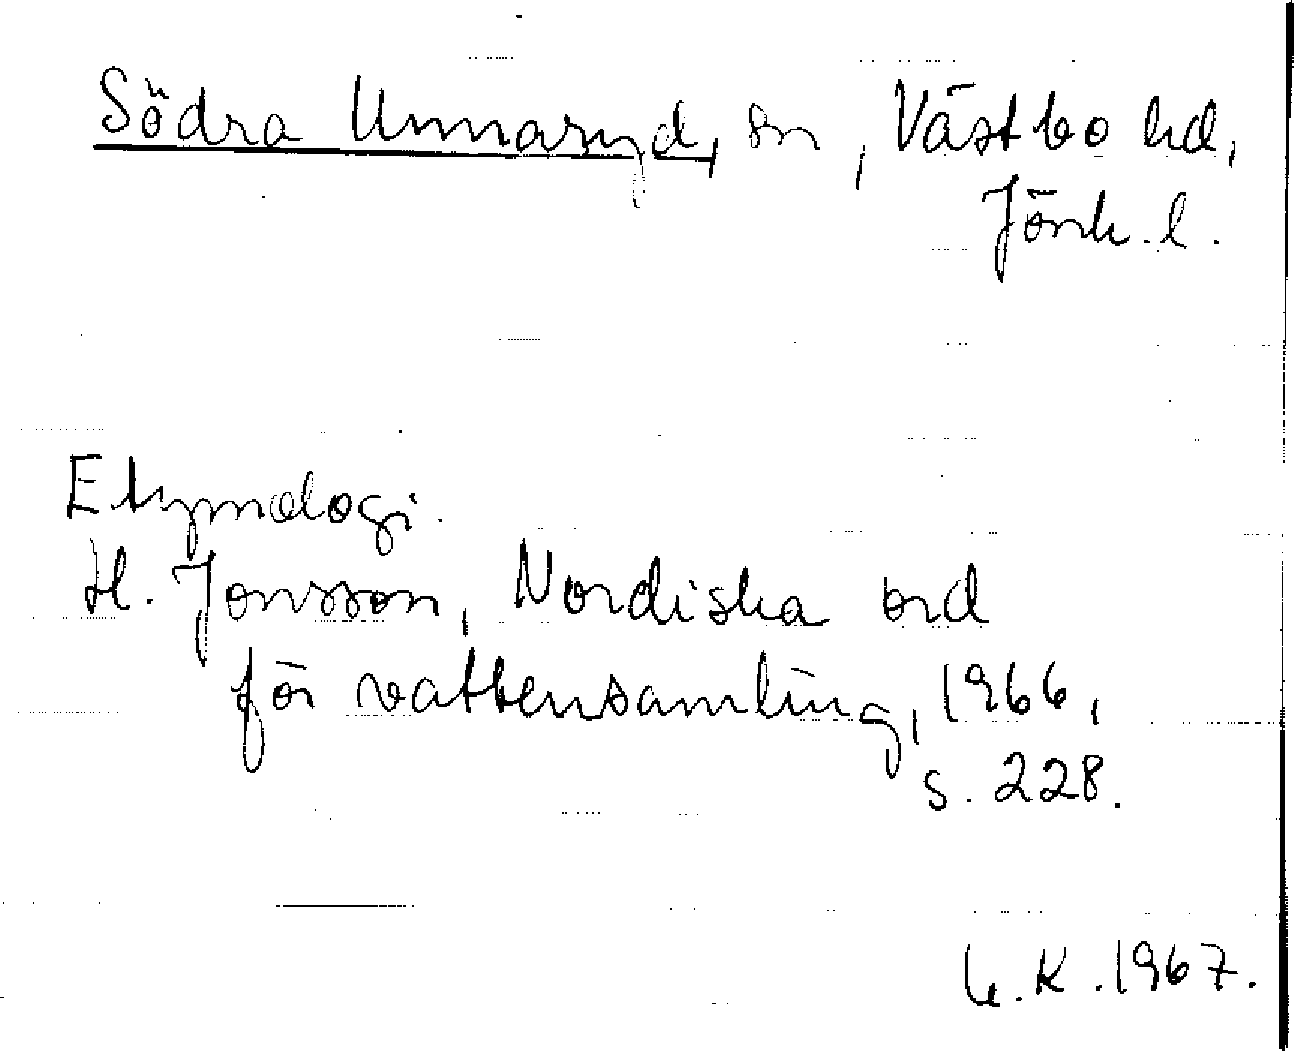 Södra Unnaryd, sn, Västbo hd,
Jönk. l.
Etymologi.
H. Jonsson, Nordiska ord
för vattensamling, 1966,
s. 228.
K. 1967.